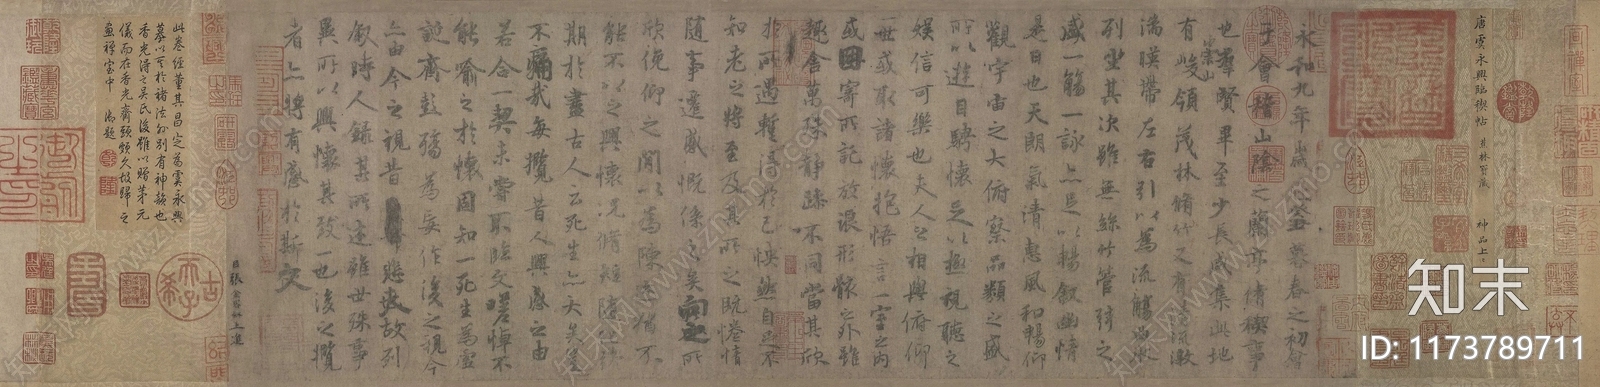 唐虞永興臨禊帖
蕉林寶藏
神品上上
永和九年歲在癸丑暮春之初會
于會稽山陰之蘭亭脩稧事
也羣賢畢至少長咸集此地
有崇山峻領茂林脩竹又有清流激
湍暎帶左右引以為流觴曲水
列坐其次雖無絲竹管弦之
盛一觴一詠亦足以暢敘幽情
是日也天朗氣清惠風和暢仰
觀宇宙之大俯察品類之盛
所以遊目騁懷足以極視聽之
娛信可樂也夫人之相與俯仰
一世或取諸懷抱悟言一室之內
或因寄所託放浪形骸之外雖
趣舍萬殊靜躁不同當其欣
於所遇暫得於己怏然自足不
知老之將至及其所之既惓情
隨事遷感慨係之矣向之所
欣俛仰之閒以為陳迹猶不
能不以之興懷況脩短隨化終
期於盡古人云死生亦大矣豈
不痛哉每攬昔人興感之由
若合一契未嘗不臨文嗟悼不
能喻之於懷固知一死生為虛
誕齊彭殤為妄作後之視今
亦由今之視昔悲夫故列
敘時人錄其所述雖世殊事
異所以興懷其致一也後之攬
者亦將有感於斯文
臣張金界奴上進
此卷經董其昌定為虞永興
摹以其於褚法外別有神韻也
香光得之吳氏後雖以贈茅元
儀而在香光齋頭頗久故歸之
畫禪室中 御題
知末
ID: 1173789711
知末网www.znzmo.com